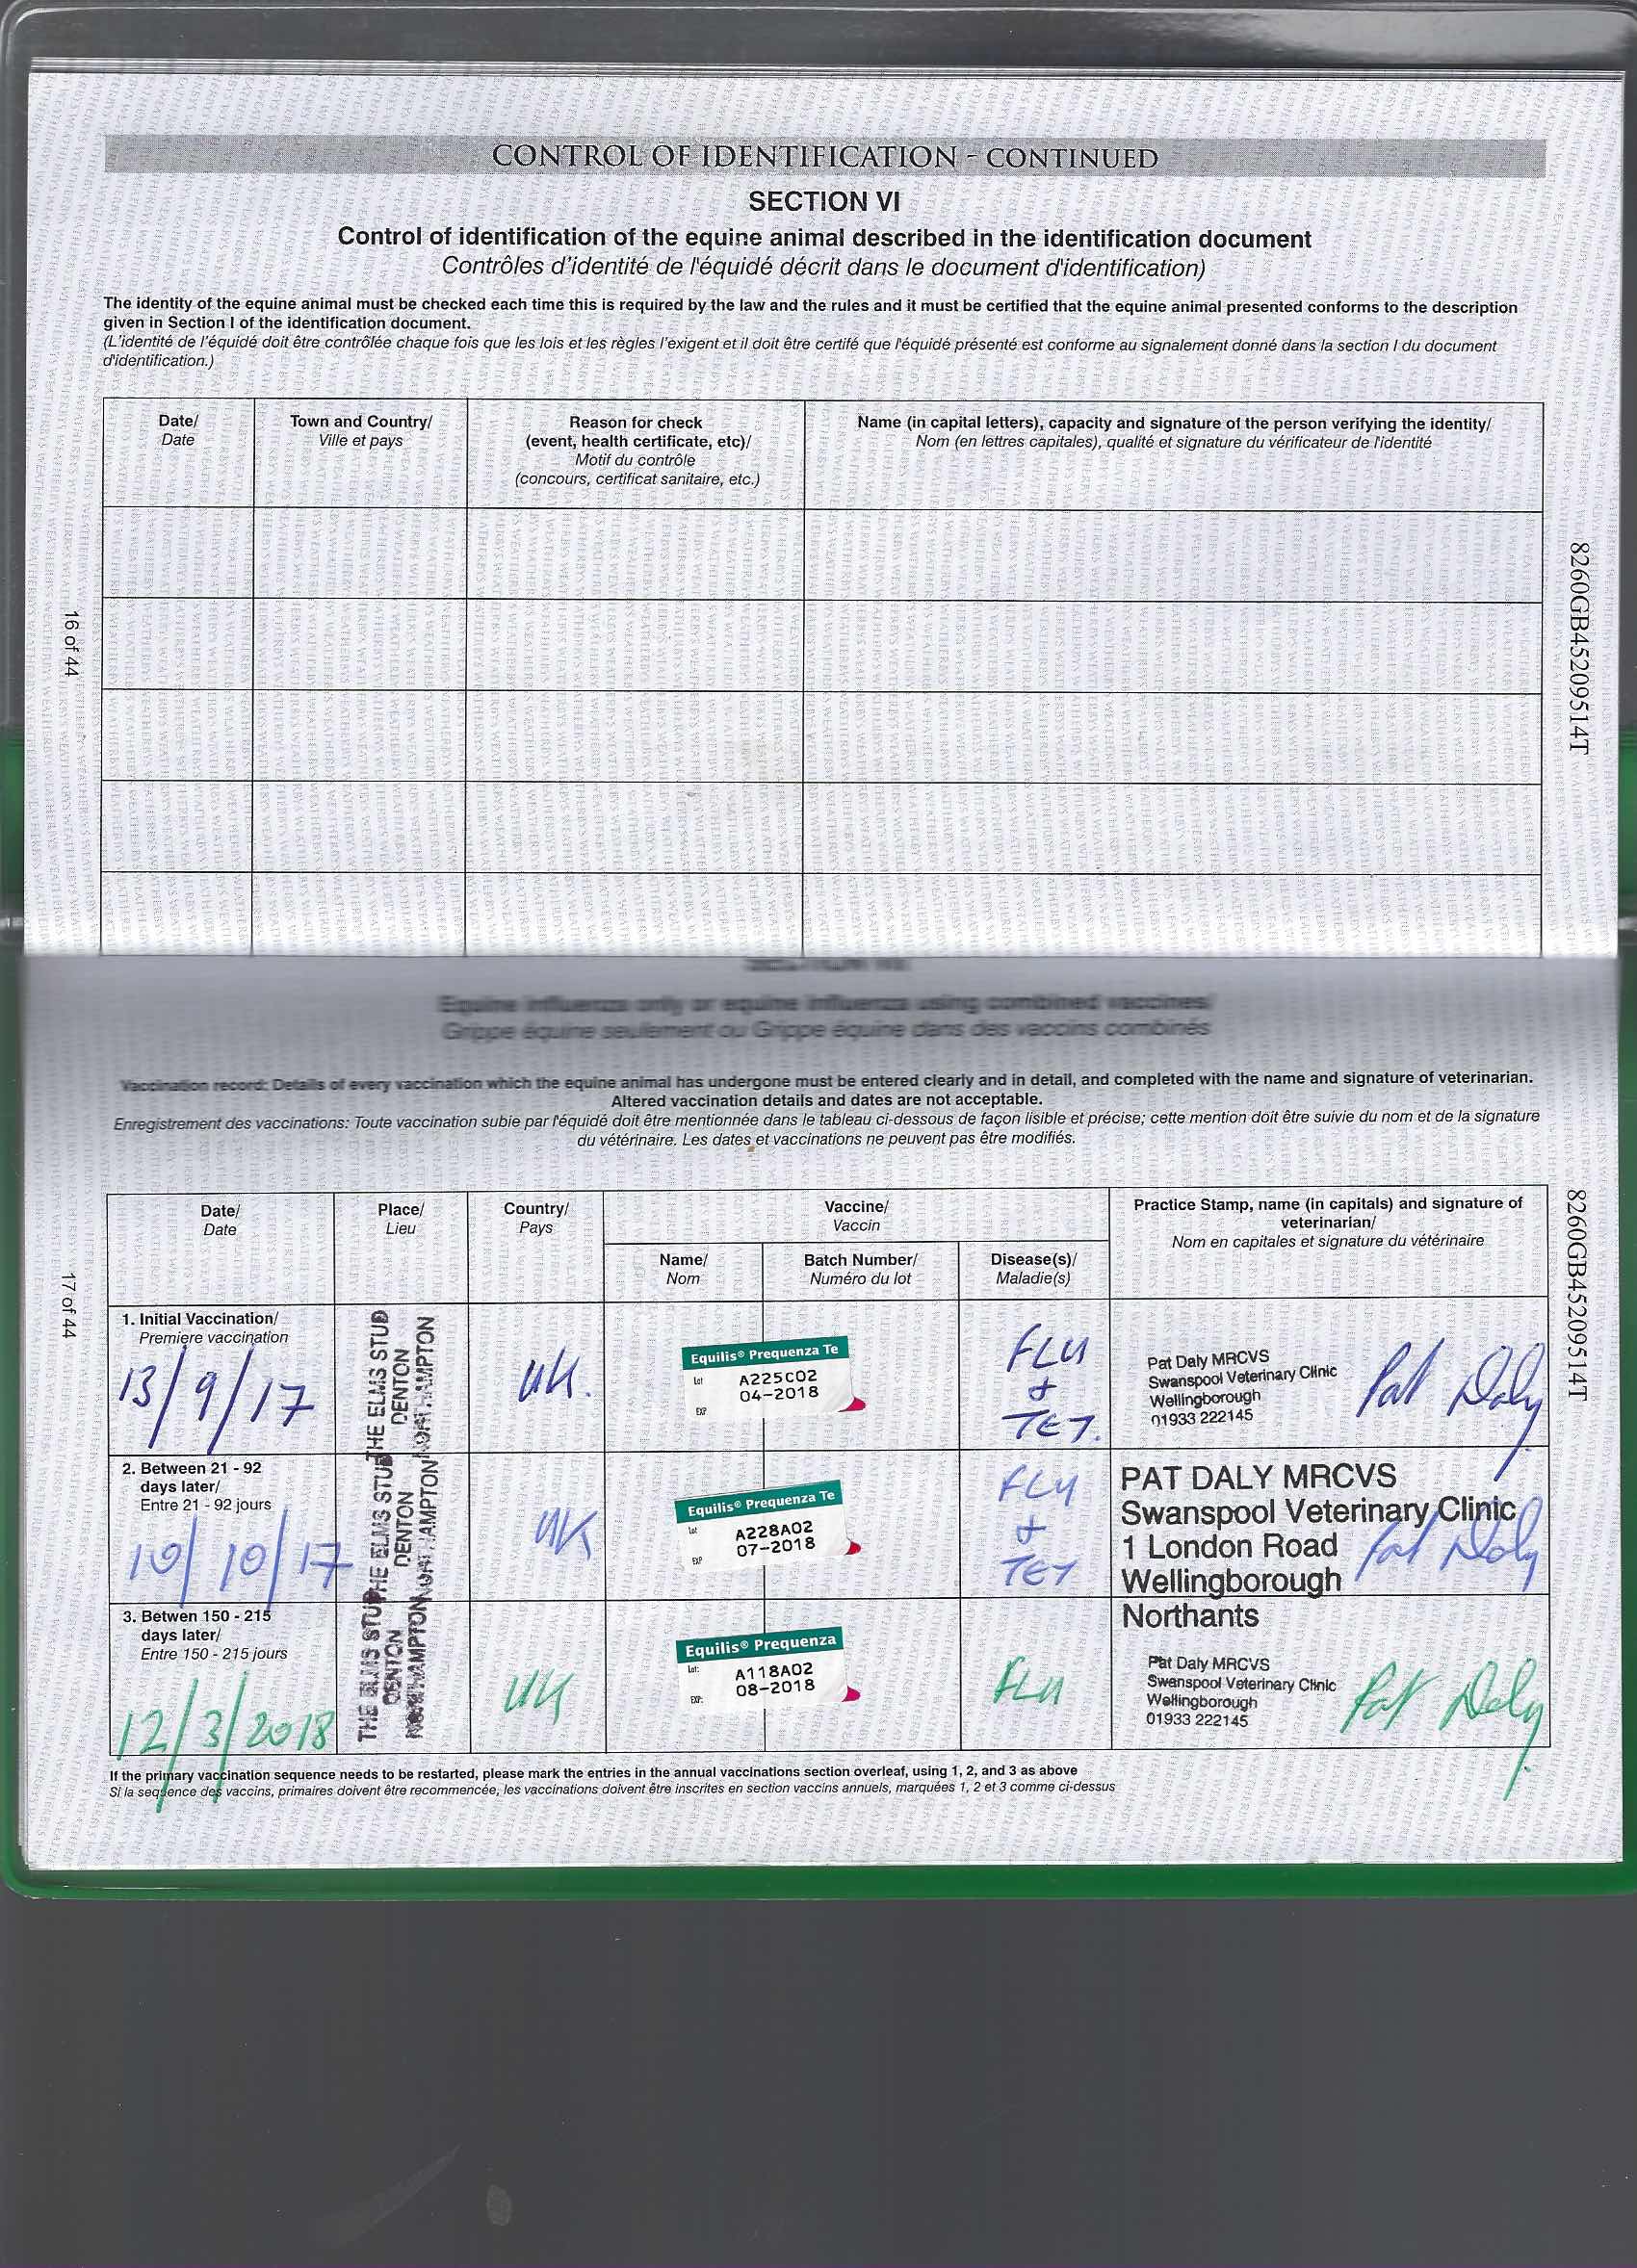 CONTROL OF IDENTIFICATION - CONTINUED
SECTION VI
Control of identification of the equine animal described in the identification document
Contrôles d'identité de l'équidé décrit dans le document d'identification)
The identity of the equine animal must be checked each time this is required by the law and the rules and it must be certified that the equine animal presented conforms to the description
given in Section I of the identification document.
(L'identité de l'équidé doit être contrôlée chaque fois que les lois et les règles l'exigent et il doit être certifé que l'équidé présenté est conforme au signalement donné dans la section I du document
d'identification.)
Date/
Date
Town and Country/
Ville et pays
Reason for check
(event, health certificate, etc)/
Motif du contrôle
(concours, certificat sanitaire, etc.)
Name (in capital letters), capacity and signature of the person verifying the identity/
Nom (en lettres capitales), qualité et signature du vérificateur de l'identité
8260GB45209514T
16 of 44
Equine influenza only or equine influenza using combined vaccines/
Grippe équine seulement ou Grippe équine dans des vaccins combinés
Vaccination record: Details of every vaccination which the equine animal has undergone must be entered clearly and in detail, and completed with the name and signature of veterinarian.
Altered vaccination details and dates are not acceptable.
Enregistrement des vaccinations: Toute vaccination subie par l'équidé doit être mentionnée dans le tableau ci-dessous de façon lisible et précise; cette mention doit être suivie du nom et de la signature
du vétérinaire. Les dates et vaccinations ne peuvent pas être modifiés.
Date/
Date
Place/
Lieu
Country/
Pays
Vaccine/
Vaccin
Name/
Nom
Batch Number/
Numéro du lot
Disease(s)/
Maladie(s)
Practice Stamp, name (in capitals) and signature of
veterinarian/
Nom en capitales et signature du vétérinaire
8260GB45209514T
17 of 44
1. Initial Vaccination/
Premiere vaccination
13/9/17
THE ELMS STUD
DENTON
NORTHAMPTON
UK.
Equilis® Prequenza Te
Lot A225C02
04-2018
EXP
FLU
+
TET.
Pat Daly MRCVS
Swanspool Veterinary Clinic
Wellingborough
01933 222145
Pat Daly
2. Between 21 - 92
days later/
Entre 21 - 92 jours
10/10/17
THE ELMS STUD
DENTON
NORTHAMPTON
UK
Equilis® Prequenza Te
Lot A228A02
07-2018
EXP
FLU
+
TET
PAT DALY MRCVS
Swanspool Veterinary Clinic
1 London Road
Wellingborough
Northants
Pat Daly
3. Betwen 150 - 215
days later/
Entre 150 - 215 jours
12/3/2018
THE ELMS STUD
DENTON
NORTHAMPTON
UK
Equilis® Prequenza
Lot: A118A02
08-2018
EXP:
FLU
Pat Daly MRCVS
Swanspool Veterinary Clinic
Wellingborough
01933 222145
Pat Daly
If the primary vaccination sequence needs to be restarted, please mark the entries in the annual vaccinations section overleaf, using 1, 2, and 3 as above
Si la seqsence des vaccins, primaires doivent être recommencée, les vaccinations doivent être inscrites en section vaccins annuels, marquées 1, 2 et 3 comme ci-dessus